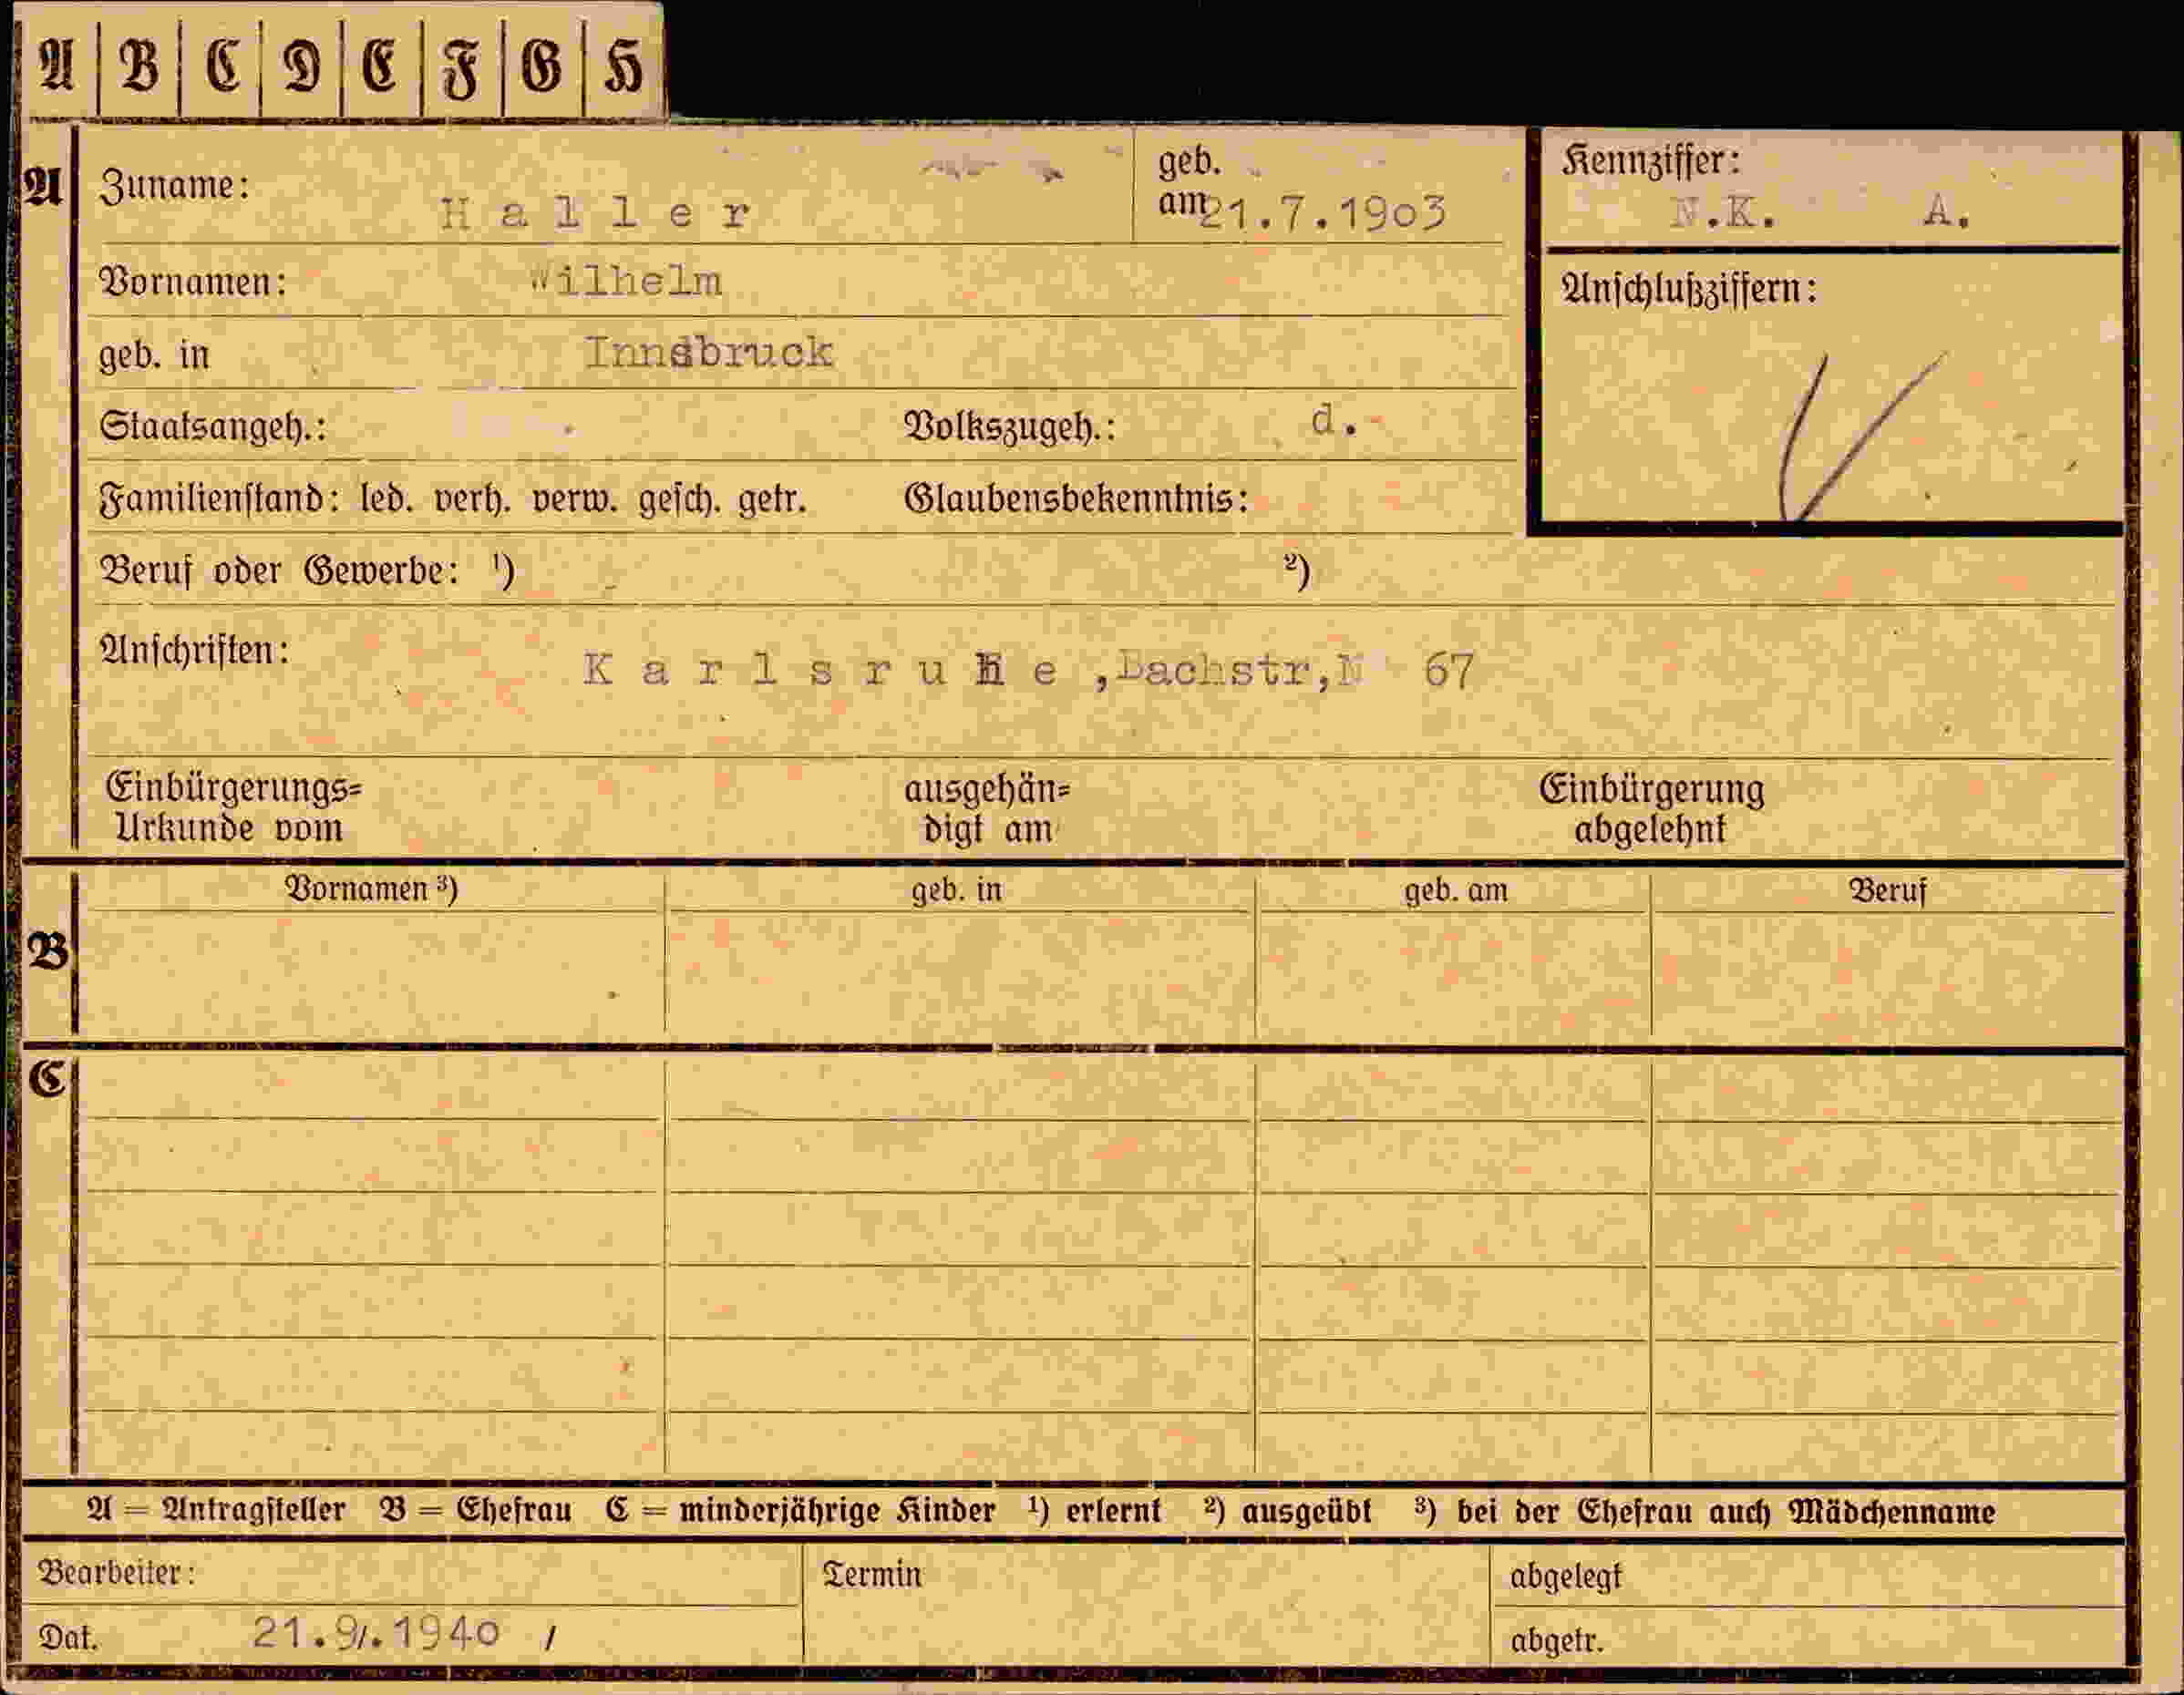 A B C D E F G H
A Zuname: Haller geb. am 21.7.1903 Kennziffer: N.K. A.
Vornamen: Wilhelm Anschlußziffern:
geb. in Innsbruck
Staatsangeh.: Volkszugeh.: d.-
Familienstand: led. verh. verw. gesch. getr. Glaubensbekenntnis:
Beruf oder Gewerbe: ¹) ²)
Anschriften: Karlsruhe ,Bachstr, 67
Einbürgerungs= ausgehän= Einbürgerung
Urkunde vom digt am abgelehnt
Vornamen ³) geb. in geb. am Beruf
B
C
A = Antragsteller B = Ehefrau C = minderjährige Kinder ¹) erlernt ²) ausgeübt ³) bei der Ehefrau auch Mädchenname
Bearbeiter: Termin abgelegt
Dat. 21.9.1940 / abgetr.